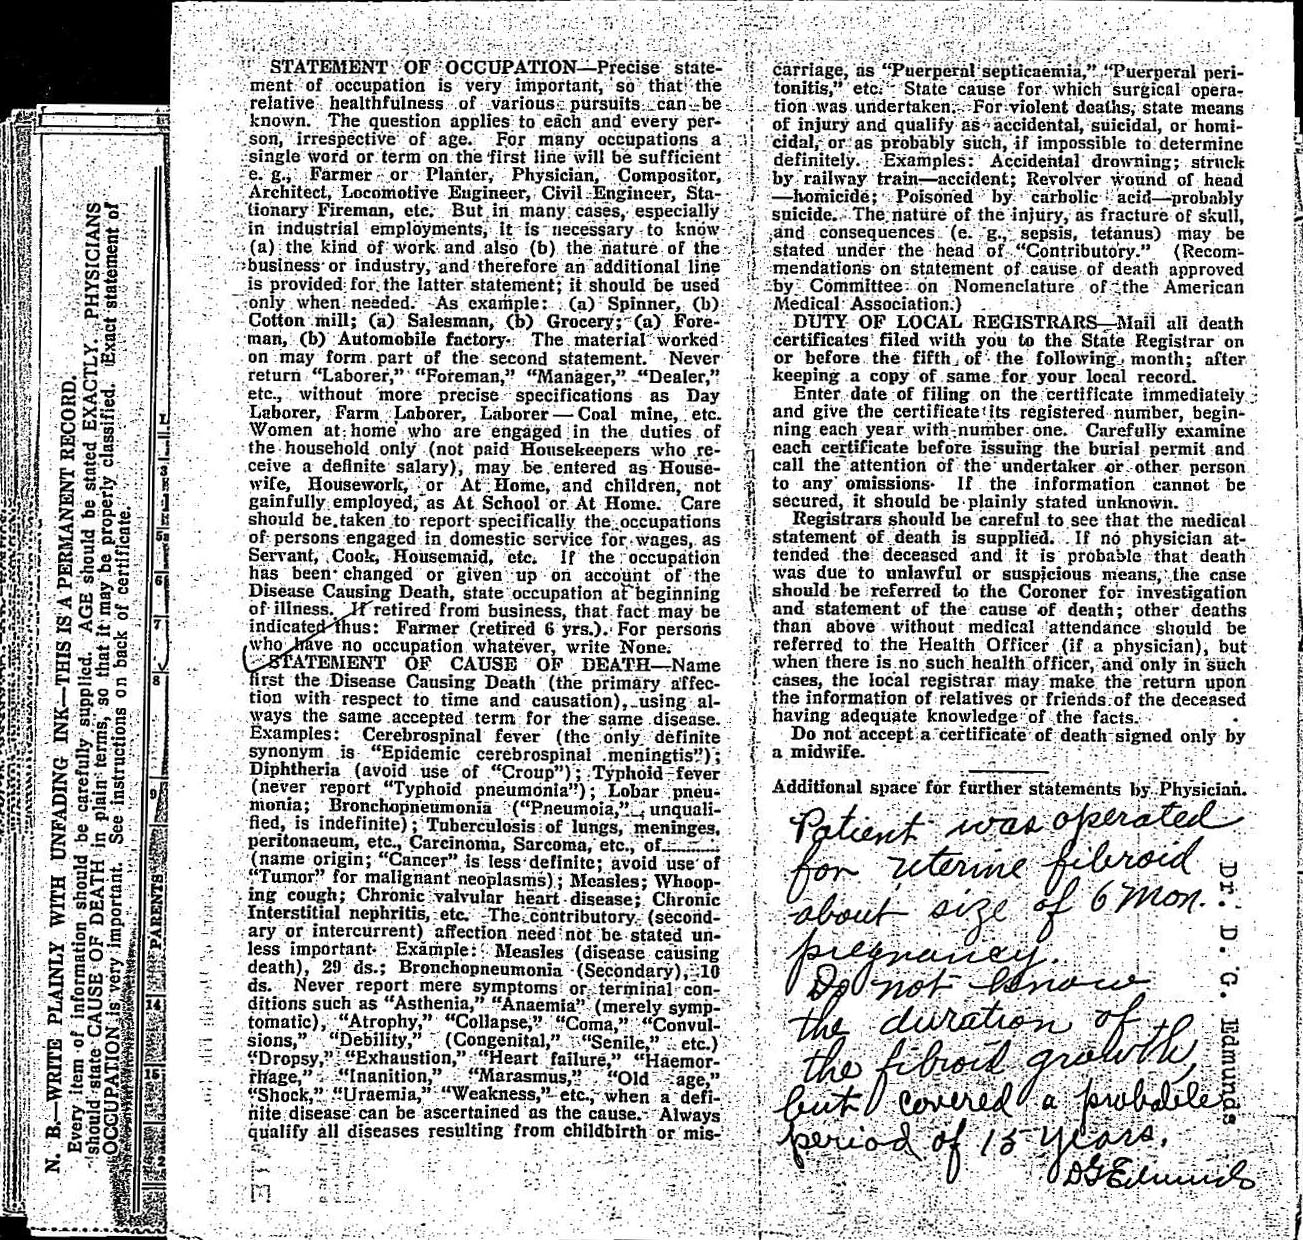 N. B.—WRITE PLAINLY WITH UNFADING INK—THIS IS A PERMANENT RECORD.
Every item of information should be carefully supplied. AGE should be stated EXACTLY. PHYSICIANS
should state CAUSE OF DEATH in plain terms, so that it may be properly classified. Exact statement of
OCCUPATION is very important. See instructions on back of certificate.
PARENTS
6
7
8
9
14
15
STATEMENT OF OCCUPATION—Precise state-
ment of occupation is very important, so that the
relative healthfulness of various pursuits can be
known. The question applies to each and every per-
son, irrespective of age. For many occupations a
single word or term on the first line will be sufficient
e. g., Farmer or Planter, Physician, Compositor,
Architect, Locomotive Engineer, Civil Engineer, Sta-
tionary Fireman, etc. But in many cases, especially
in industrial employments, it is necessary to know
(a) the kind of work and also (b) the nature of the
business or industry, and therefore an additional line
is provided for the latter statement; it should be used
only when needed. As example: (a) Spinner, (b)
Cotton mill; (a) Salesman, (b) Grocery; (a) Fore-
man, (b) Automobile factory. The material worked
on may form part of the second statement. Never
return "Laborer," "Foreman," "Manager," "Dealer,"
etc., without more precise specifications as Day
Laborer, Farm Laborer, Laborer—Coal mine, etc.
Women at home who are engaged in the duties of
the household only (not paid Housekeepers who re-
ceive a definite salary), may be entered as House-
wife, Housework, or At Home, and children, not
gainfully employed, as At School or At Home. Care
should be taken to report specifically the occupations
of persons engaged in domestic service for wages, as
Servant, Cook, Housemaid, etc. If the occupation
has been changed or given up on account of the
Disease Causing Death, state occupation at beginning
of illness. If retired from business, that fact may be
indicated thus: Farmer (retired 6 yrs.). For persons
who have no occupation whatever, write None.
STATEMENT OF CAUSE OF DEATH—Name
first the Disease Causing Death (the primary affec-
tion with respect to time and causation), using al-
ways the same accepted term for the same disease.
Examples: Cerebrospinal fever (the only definite
synonym is "Epidemic cerebrospinal meningtis");
Diphtheria (avoid use of "Croup"); Typhoid fever
(never report "Typhoid pneumonia"); Lobar pneu-
monia; Bronchopneumonia ("Pneumoia," unquali-
fied, is indefinite); Tuberculosis of lungs, meninges,
peritonaeum, etc., Carcinoma, Sarcoma, etc., of..........
(name origin; "Cancer" is less definite; avoid use of
"Tumor" for malignant neoplasms); Measles; Whoop-
ing cough; Chronic valvular heart disease; Chronic
Interstitial nephritis, etc. The contributory (second-
ary or intercurrent) affection need not be stated un-
less important. Example: Measles (disease causing
death), 29 ds.; Bronchopneumonia (Secondary), 10
ds. Never report mere symptoms or terminal con-
ditions such as "Asthenia," "Anaemia" (merely symp-
tomatic), "Atrophy," "Collapse," "Coma," "Convul-
sions," "Debility," (Congenital," "Senile," etc.)
"Dropsy," "Exhaustion," "Heart failure," "Haemor-
rhage," "Inanition," "Marasmus," "Old age,"
"Shock," "Uraemia," "Weakness," etc., when a defi-
nite disease can be ascertained as the cause. Always
qualify all diseases resulting from childbirth or mis-
carriage, as "Puerperal septicaemia," "Puerperal peri-
tonitis," etc. State cause for which surgical opera-
tion was undertaken. For violent deaths, state means
of injury and qualify as accidental, suicidal, or homi-
cidal, or as probably such, if impossible to determine
definitely. Examples: Accidental drowning; struck
by railway train—accident; Revolver wound of head
—homicide; Poisoned by carbolic acid—probably
suicide. The nature of the injury, as fracture of skull,
and consequences (e. g., sepsis, tetanus) may be
stated under the head of "Contributory." (Recom-
mendations on statement of cause of death approved
by Committee on Nomenclature of the American
Medical Association.)
DUTY OF LOCAL REGISTRARS—Mail all death
certificates filed with you to the State Registrar on
or before the fifth of the following month; after
keeping a copy of same for your local record.
Enter date of filing on the certificate immediately
and give the certificate its registered number, begin-
ning each year with number one. Carefully examine
each certificate before issuing the burial permit and
call the attention of the undertaker or other person
to any omissions. If the information cannot be
secured, it should be plainly stated unknown.
Registrars should be careful to see that the medical
statement of death is supplied. If no physician at-
tended the deceased and it is probable that death
was due to unlawful or suspicious means, the case
should be referred to the Coroner for investigation
and statement of the cause of death; other deaths
than above without medical attendance should be
referred to the Health Officer (if a physician), but
when there is no such health officer, and only in such
cases, the local registrar may make the return upon
the information of relatives or friends of the deceased
having adequate knowledge of the facts.
Do not accept a certificate of death signed only by
a midwife.
Additional space for further statements by Physician.
Patient was operated
for uterine fibroid
about size of 6 Mon.
pregnancy.
Do not know
the duration of
the fibroid growth,
but covered a probable
period of 15 years.
DGEdmunds
Dr. D. G. Edmunds